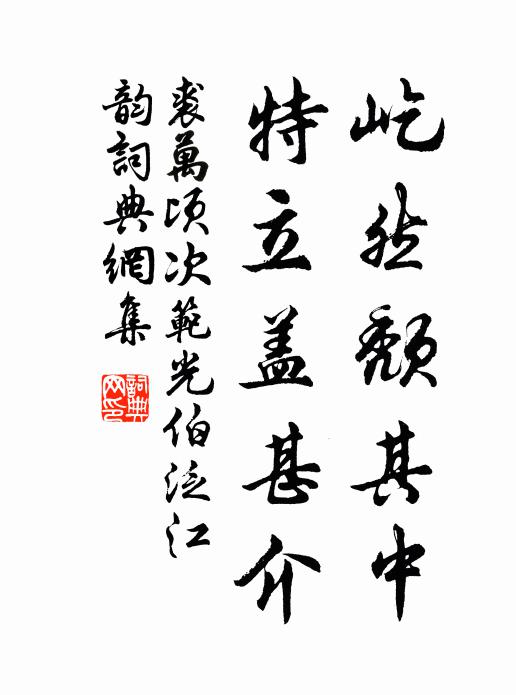 屹然頹其中
特立盖甚介
裘萬頃次範光伯泛江
韵詞典網集
詞典网印